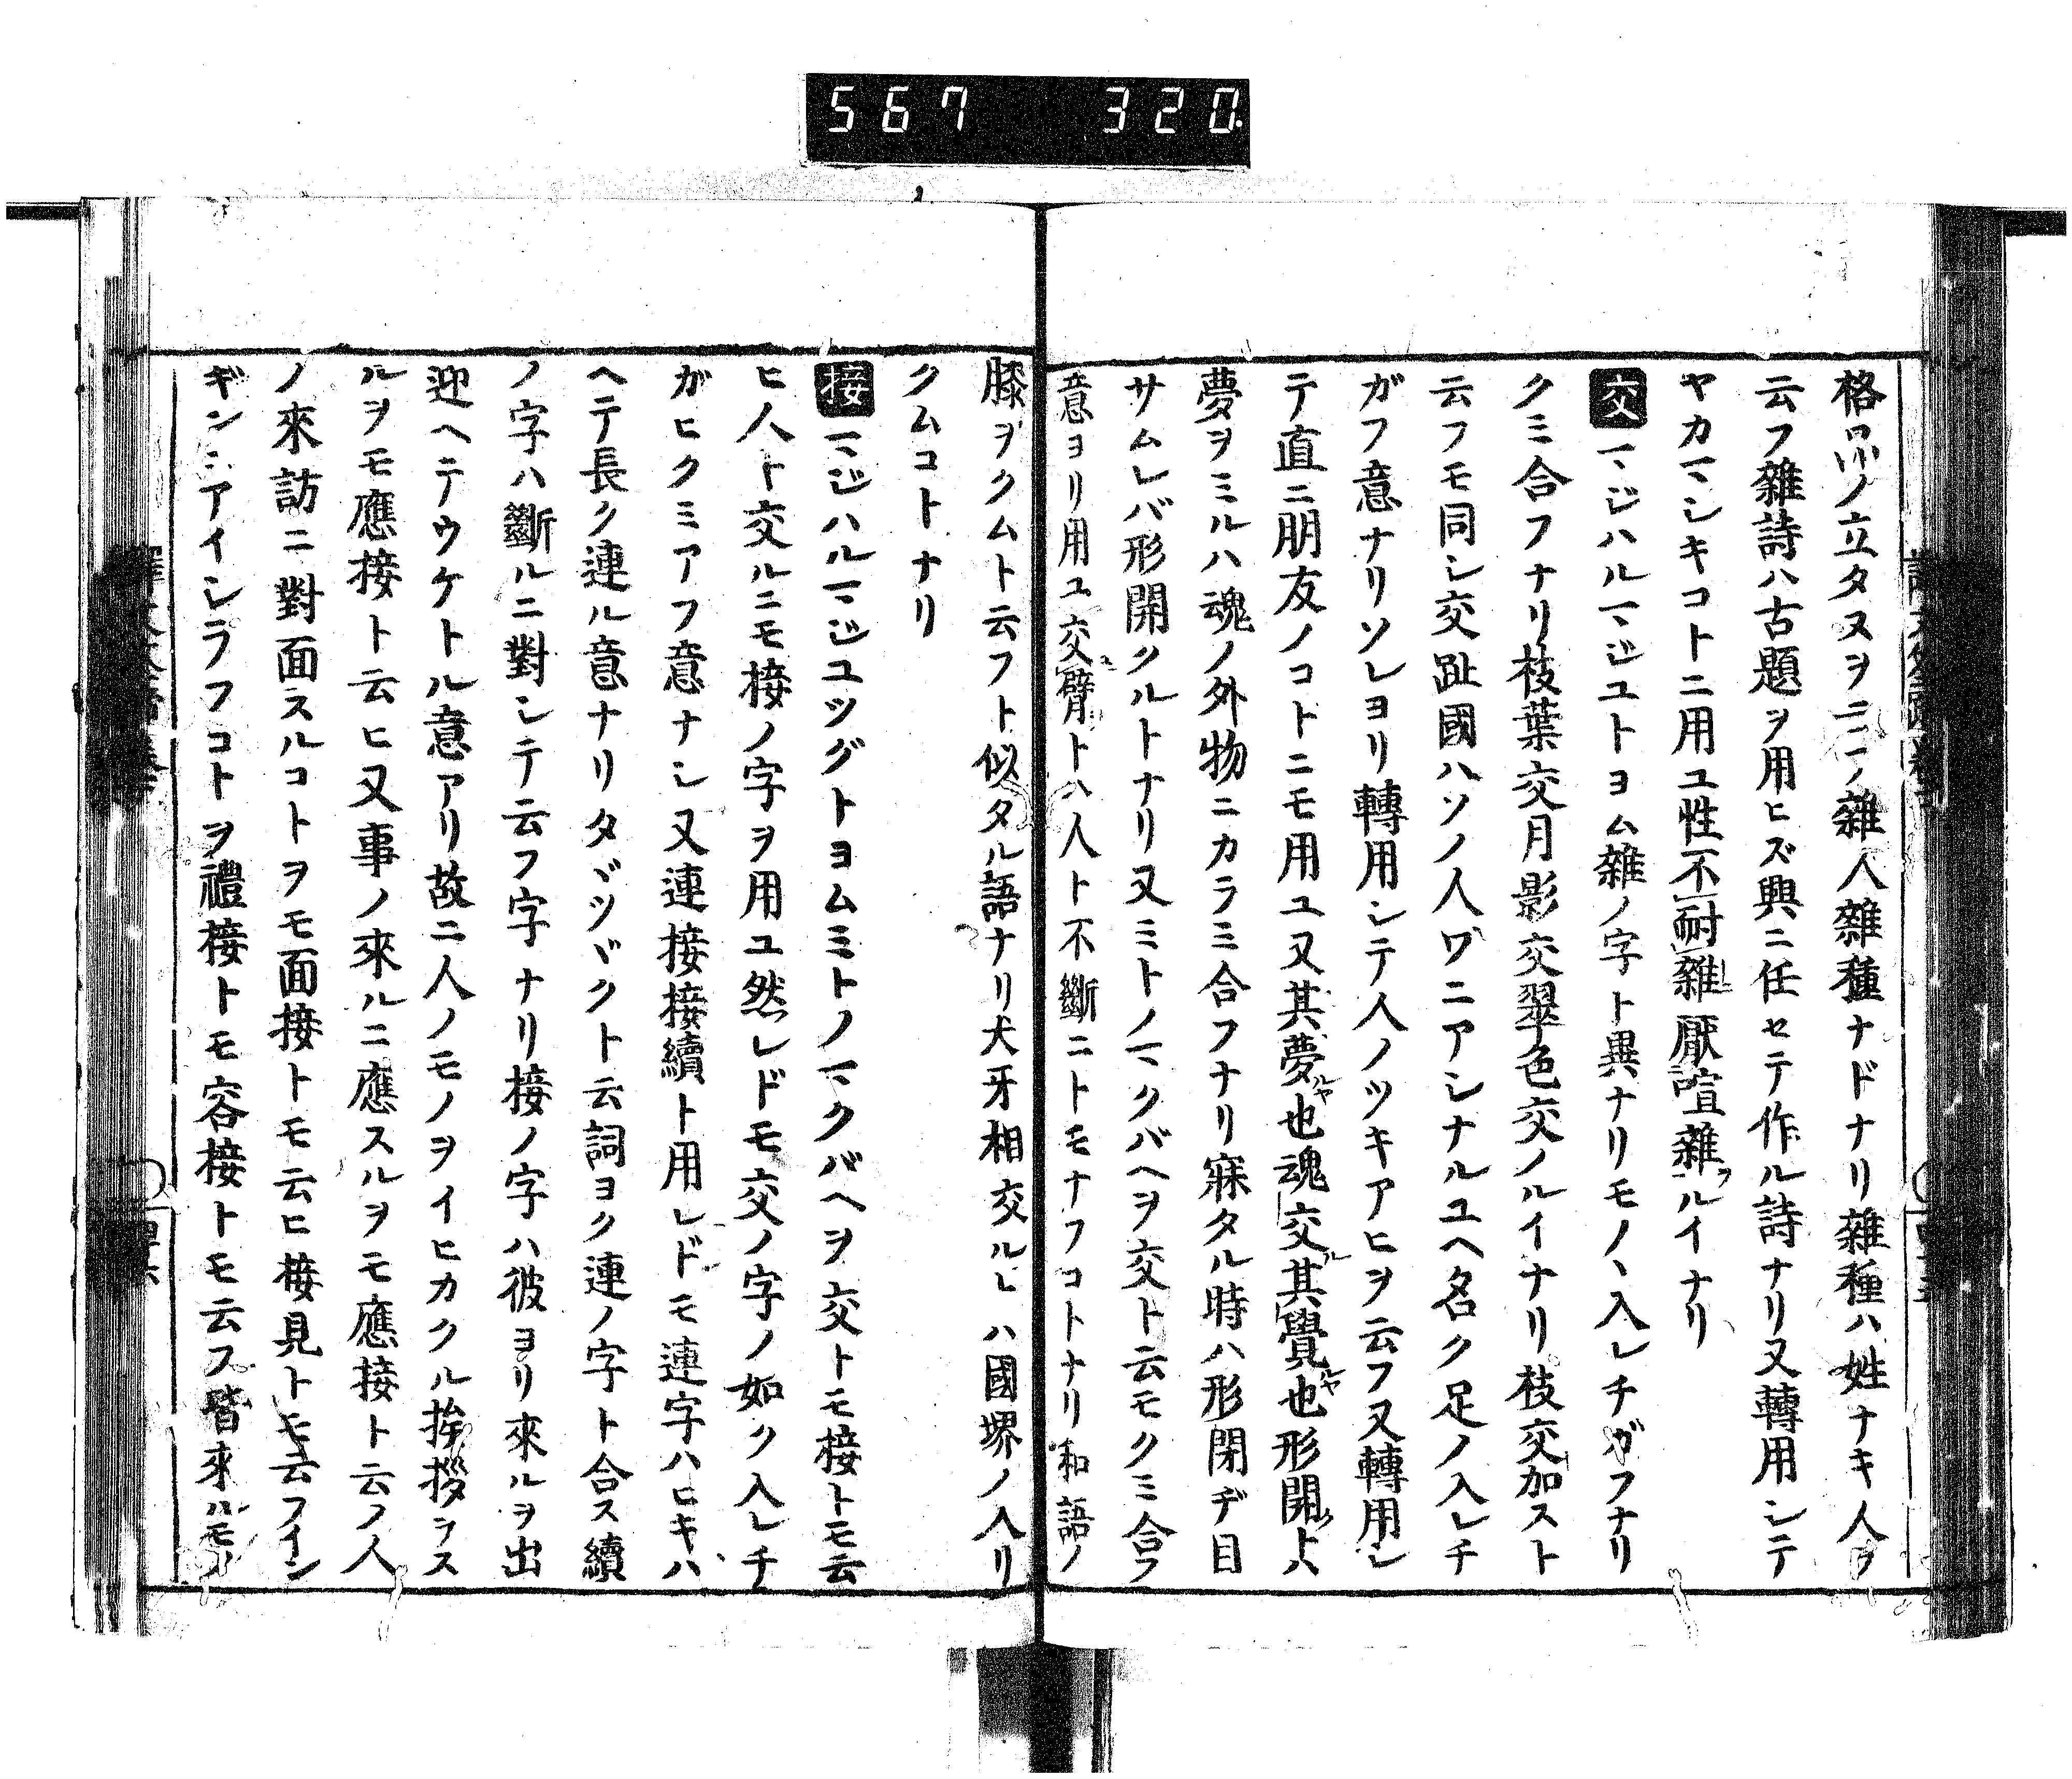 567 320
格ノ立タヌヲ云フ雜人雜種ナドナリ雜種ハ姓ナキ人ヲ
云フ雜詩ハ古題ヲ用ヒズ興ニ任セテ作ル詩ナリ又轉用シテ
ヤカマシキコトニ用ユ性不耐雜厭喧雜ルイナリ
交マジハルマジユトヨム雜ノ字ト異ナリモノヽ入レチガフナリ
クミ合フナリ枝葉交月影交翠色交ノルイナリ枝交加スト
云フモ同シ交趾國ハソノ人ワニアシナルユヘ名ク足ノ入レチ
ガフ意ナリソレヨリ轉用シテ人ノツキアヒヲ云フ又轉用シ
テ直ニ朋友ノコトニモ用ユ又其夢ルヤ也魂交ル其覺ルヤ也形開トハ
夢ヲミルハ魂ノ外物ニカラミ合フナリ寐タル時ハ形閉ヂ目
サムレバ形開クルトナリ又ミトノマクバヘヲ交ト云モクミ合フ
意ヨリ用ユ交臂トハ人ト不斷ニトモナフコトナリ和語ノ
膝ヲクムト云フト似タル語ナリ犬牙相交ルハ國堺ノ入リ
クムコトナリ
接マジハルマジユツグトヨムミトノマクバヘヲ交トモ接トモ云
ヒ人ト交ルニモ接ノ字ヲ用ユ然レドモ交ノ字ノ如ク入レチ
ガヒクミアフ意ナシ又連接接續ト用レドモ連字ハヒキハ
ヘテ長ク連ル意ナリタヾツヾクト云詞ヨク連ノ字ト合ス續
ノ字ハ斷ルニ對シテ云フ字ナリ接ノ字ハ彼ヨリ來ルヲ出
迎ヘテウケトル意アリ故ニ人ノモノヲイヒカクル挨拶ヲス
ルヲモ應接ト云ヒ又事ノ來ルニ應スルヲモ應接ト云フ人
ノ來訪ニ對面スルコトヲモ面接トモ云ヒ接見トモ云フイン
ギンニアイシラフコトヲ禮接トモ容接トモ云フ皆來ルモノ